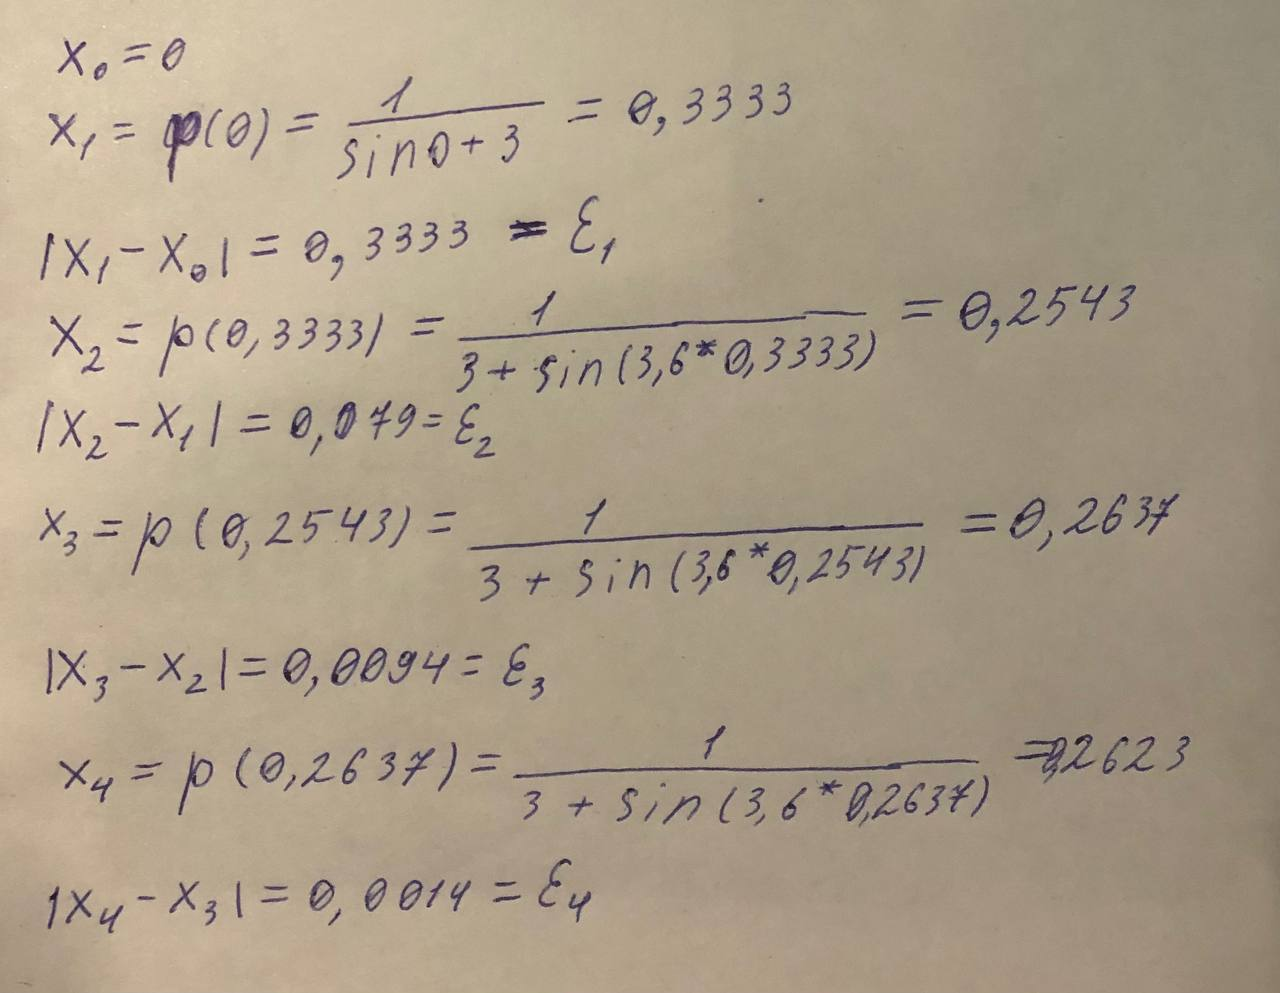 x₀ = 0
x₁ = p(0) = 1 / (sin0 + 3) = 0,3333
|x₁ - x₀| = 0,3333 = ε₁
x₂ = p(0,3333) = 1 / (3 + sin(3,6*0,3333)) = 0,2543
|x₂ - x₁| = 0,079 = ε₂
x₃ = p(0,2543) = 1 / (3 + sin(3,6*0,2543)) = 0,2637
|x₃ - x₂| = 0,0094 = ε₃
x₄ = p(0,2637) = 1 / (3 + sin(3,6*0,2637)) = 0,2623
|x₄ - x₃| = 0,0014 = ε₄